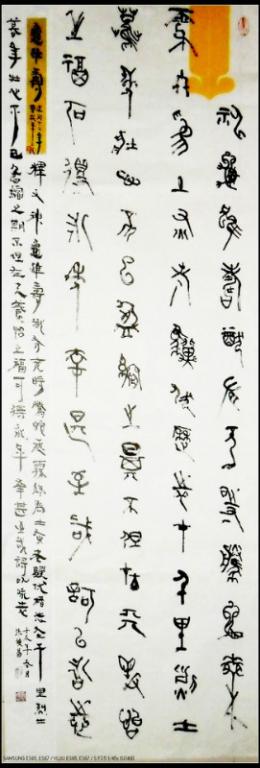 神龜雖壽猶有竟時騰蛇乘
霧終爲土灰老驥伏櫪志在千里烈士
暮年壯心不已盈縮之期不但在天養怡
之福可得永年幸甚至哉歌以詠志
龜雖壽
釋文神龜雖壽猶有竟時騰蛇乘霧終爲土灰老驥伏櫪志在千里烈士
暮年壯心不已盈縮之期不但在天養怡之福可得永年幸甚至哉歌以詠志
SAMSUNG ES65, ES67 / VLUU ES65, ES67